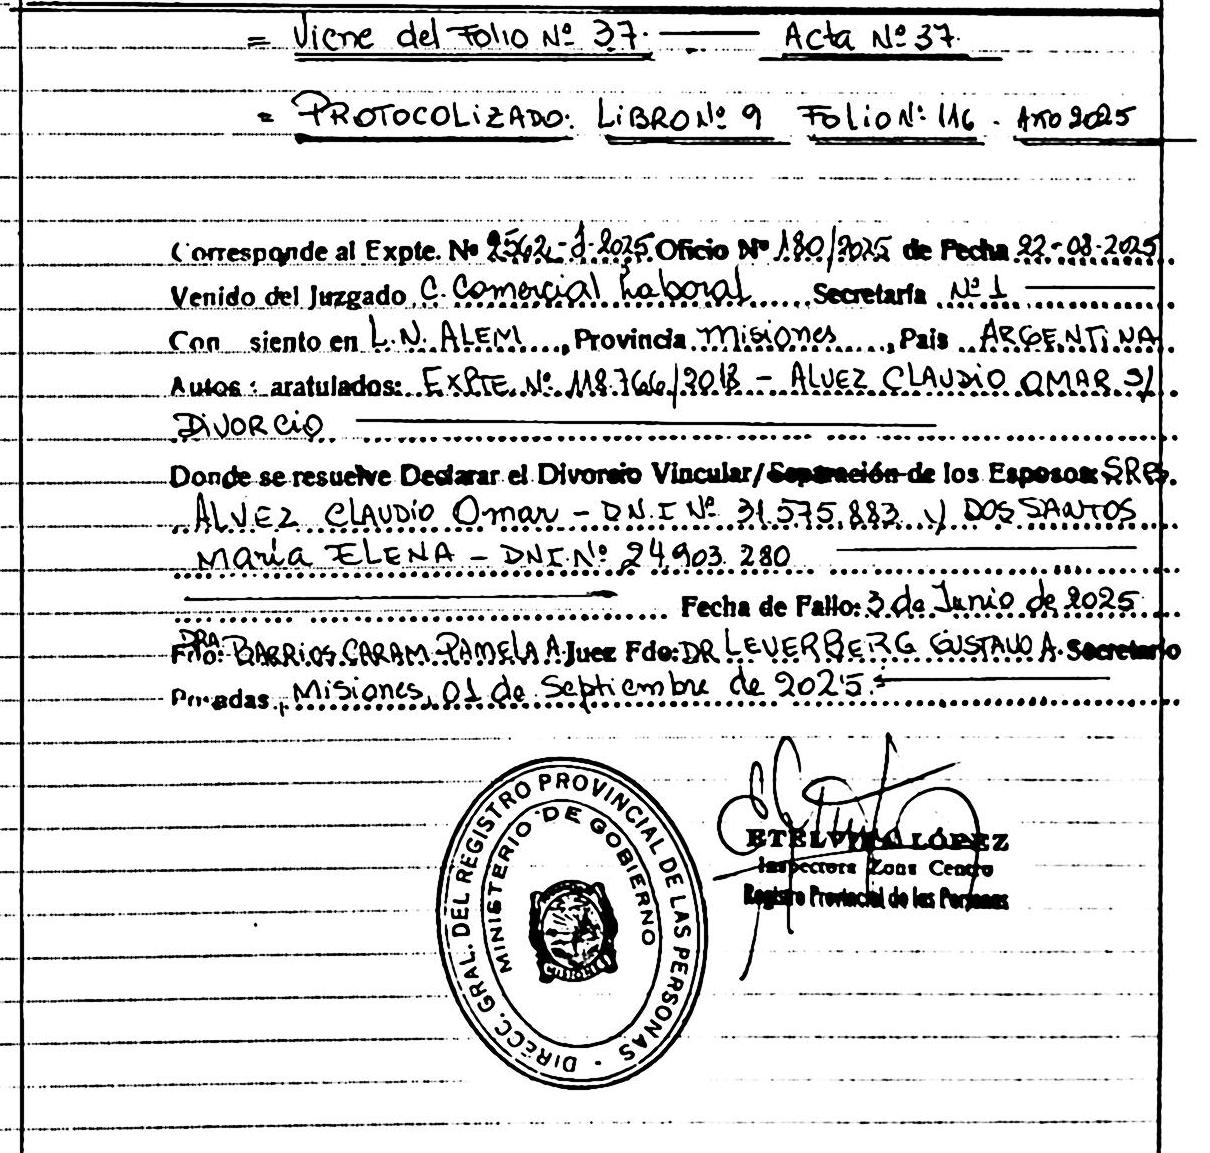 = Viene del Folio Nº 37. — Acta Nº 37.
= PROTOCOLIZADO: LIBRO Nº 9 Folio Nº 116. AÑO 2025
Corresponde al Expte. Nº 2562-J-2025 Oficio Nº 180/2025 de Fecha 22-08-2025
Venido del Juzgado C. Comercial, Laboral Secretaría Nº 1
Con siento en L.N. ALEM, Provincia Misiones, Pais ARGENTINA
Autos: aratulados: EXPTE. Nº 118.766/2018 - ALVEZ CLAUDIO OMAR S/
DIVORCIO
Donde se resuelve Declarar el Divorcio Vincular/Separación de los Esposos: SRES.
ALVEZ CLAUDIO Omar - D.N.I Nº 31.575.883 y DOS SANTOS
María ELENA - DNI. Nº 24.903.280
Fecha de Fallo: 3 de Junio de 2025
Fdo: DRA BARRIOS CARAM PAMELA A. Juez Fdo: DR LEVERBERG GUSTAVO A. Secretario
Posadas, Misiones, 01 de Septiembre de 2025.
DIRECC. GRAL. DEL REGISTRO PROVINCIAL DE LAS PERSONAS
MINISTERIO DE GOBIERNO
MISIONES
LÓPEZ
Inspectora Zona Centro
Registro Provincial de las Personas